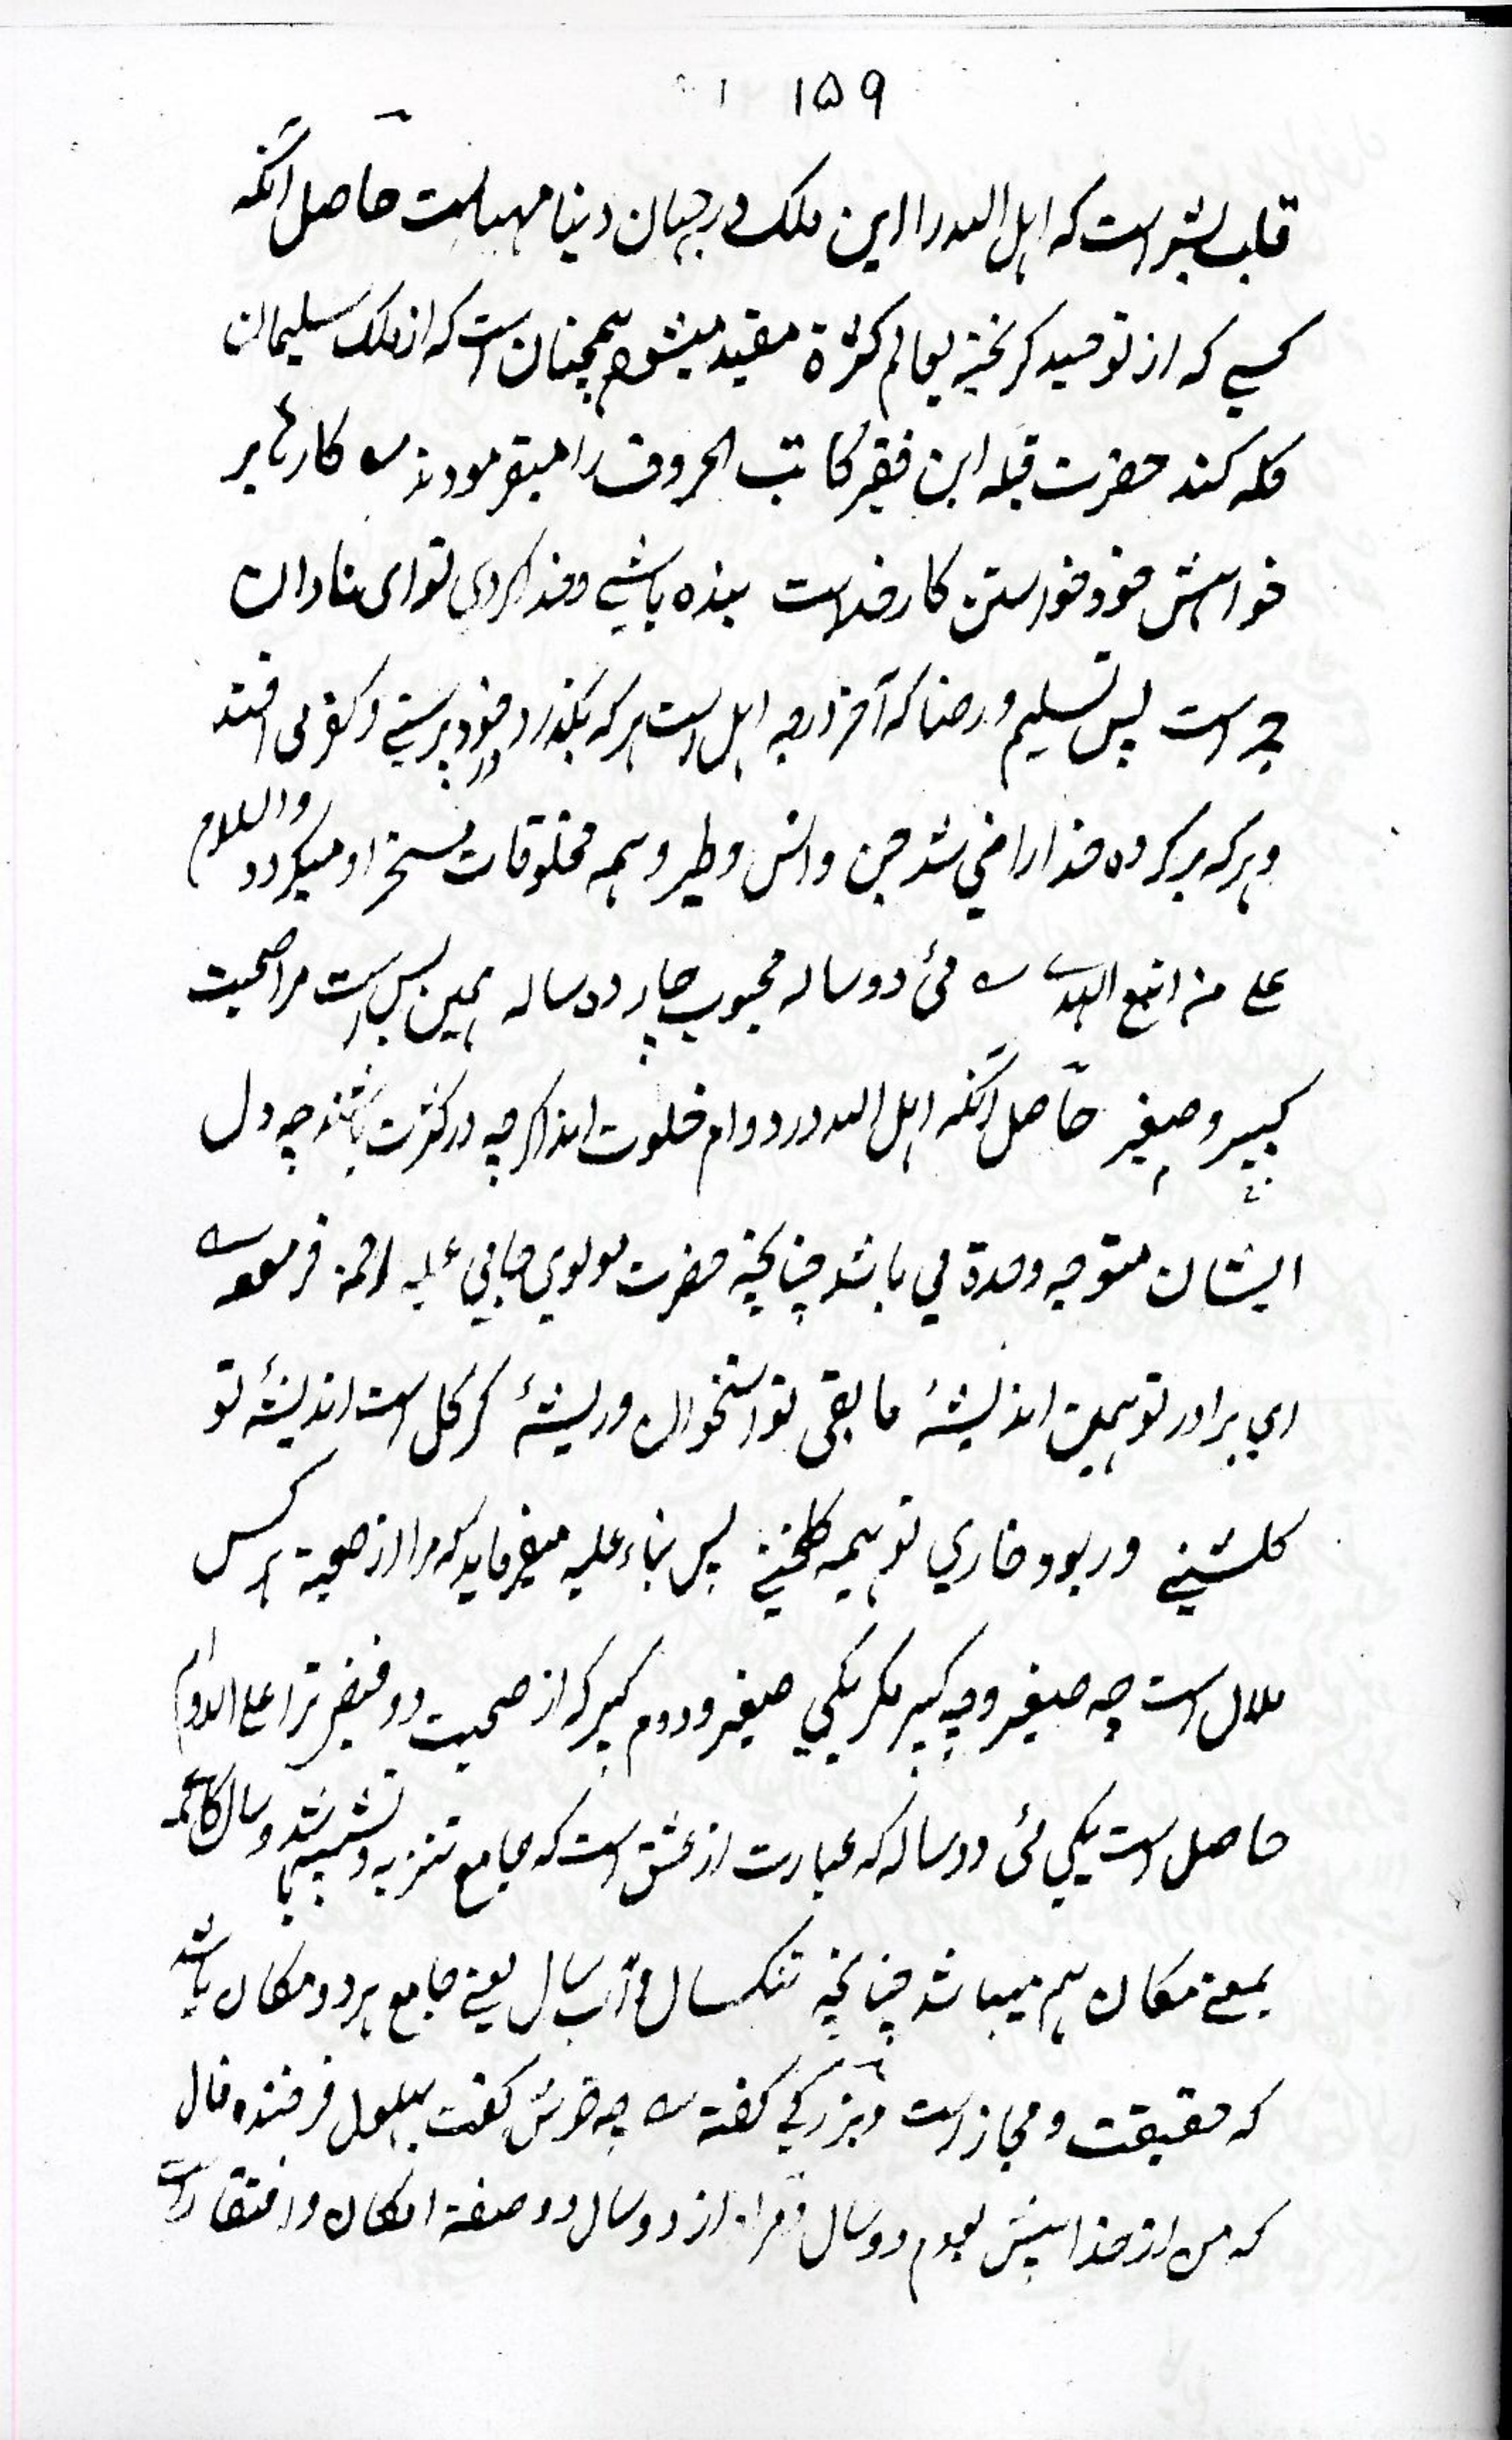 ۱۵۹
قلب بشر است که اهل الله را این ملک در جهان دنیا مهیاست حاصل آنکه
کسی که از توحید گریخته بعالم کثرة مقید میشود همچنان است که از ملک سلیمان
گله کند حضرت قبله این فقیر کاتب الحروف را میفرمودند کارها بر
خواهش خود خواستن کار خداست بنده باشی و خدا کردی تو ای نادان
چراست پس تسلیم و رضا که آخر درجه اهل است هر که بگذرد در خود پرستی و کفر می افتد
و هر که بر کرده خدا راضی شد جن و انس و طیر و همه مخلوقات مسخر او میگردد والسلام
علی من اتبع الهدی می دو ساله محبوب چارده ساله همین بس است مرا صحبت
کبیر و صغیر حاصل آنکه اهل الله در دوام خلوت اند اگرچه در کثرت باشند چه دل
ایشان متوجه وحدة می باشد چنانچه حضرت مولوی جامی علیه الرحمة فرموده
ای برادر تو همین اندیشهٔ مابقی تو استخوان و ریشهٔ گر گل است اندیشهٔ تو
گلشنی ور بود خاری تو همیه گلخنی پس بناء علیه میفرماید که مرا از صحبة هر کس
ملال است چه صغیر و چه کبیر مگر یکی صغیر و دوم کبیر که از صحبت دو فیض ترا علی الدوام
حاصل است یکی می دو ساله که عبارت از عشق است که جامع تنزیه و تشبیه باشد و سال گاهی
بمعنی مکان هم میباشد چنانچه تنکسال و آب سال یعنی جامع هر دو مکان باشد
که حقیقت و مجاز است و بزرگی گفته چه خوش گفت بهلول فرخنده فال
که من از خدا پیش بودم دو سال و مراد از دو سال دو صفة امکان و افتقار است